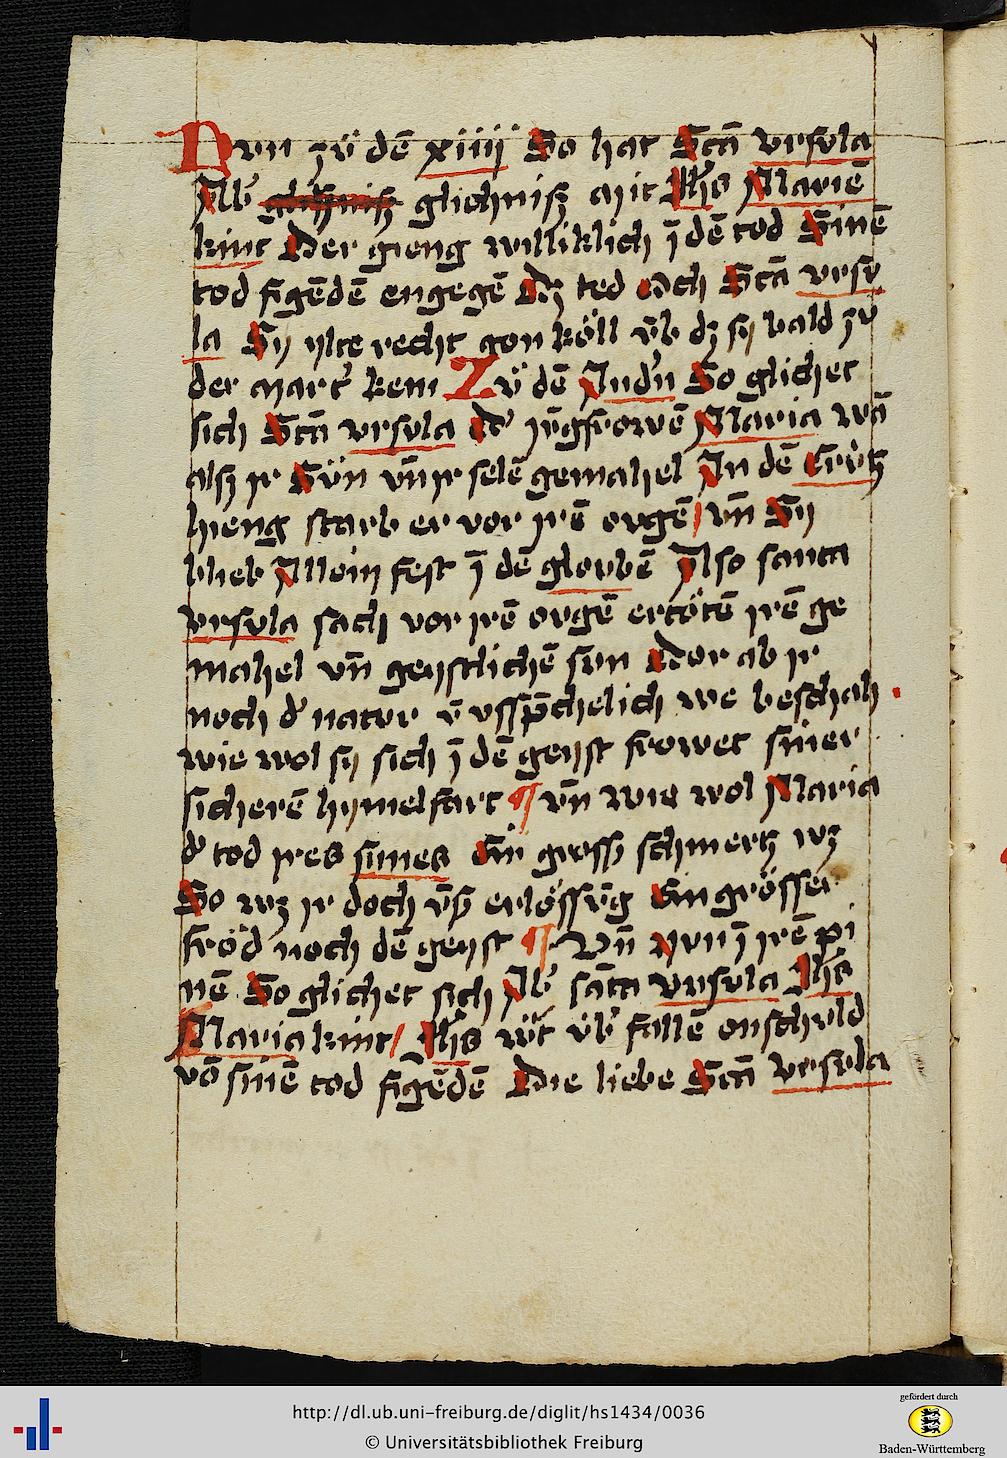 Nvn zü dē xiiij So hat Sctā vrsvla
glichniß mit Jhs Marie̅
kint Der gieng williklich j̄ dē tod Sinē
tod figēdē engegē Dz ted och Sctā vrsv
la Sij ylte recht gon köll v̄b dz sij bald zv
der mart' kem Zü dē So glichet
sich Sctā vrsvla D' jv̄gfrowē Maria wā
alß jr Sün vn̄ jr selē gemahel Jn dē Crütz
hieng starb er vor jrē ovgē / vn̄ Sij
blieb Allein fest j̄ dē glovbē Also santa
vrsvla sach vor jrē ovgē ertötē jrē ge
mahel vn̄ geystlichē svn Dor ab jr
noch d' natvr v̄vssp̄chelich we beschah
wie wol sij sich j̄ dē geyst frowet siner
sicherē hymelfart ¶ vn̄ wie wol Maria
d' tod jres sunes Ein gross schmertz wz
So wz jr doch v̄ß erlössv̄g Ein grösser
fröd noch dē geyst ¶ Vn̄ nvn j̄ jrē pi
nē So glichet sich sāta vrsvla Jhs
Maria kint / Jhs fallē onschvld
vō sinē tod figēdē Die liebe Sctā vrsvla
http://dl.ub.uni-freiburg.de/diglit/hs1434/0036
© Universitätsbibliothek Freiburg
gefördert durch
Baden-Württemberg